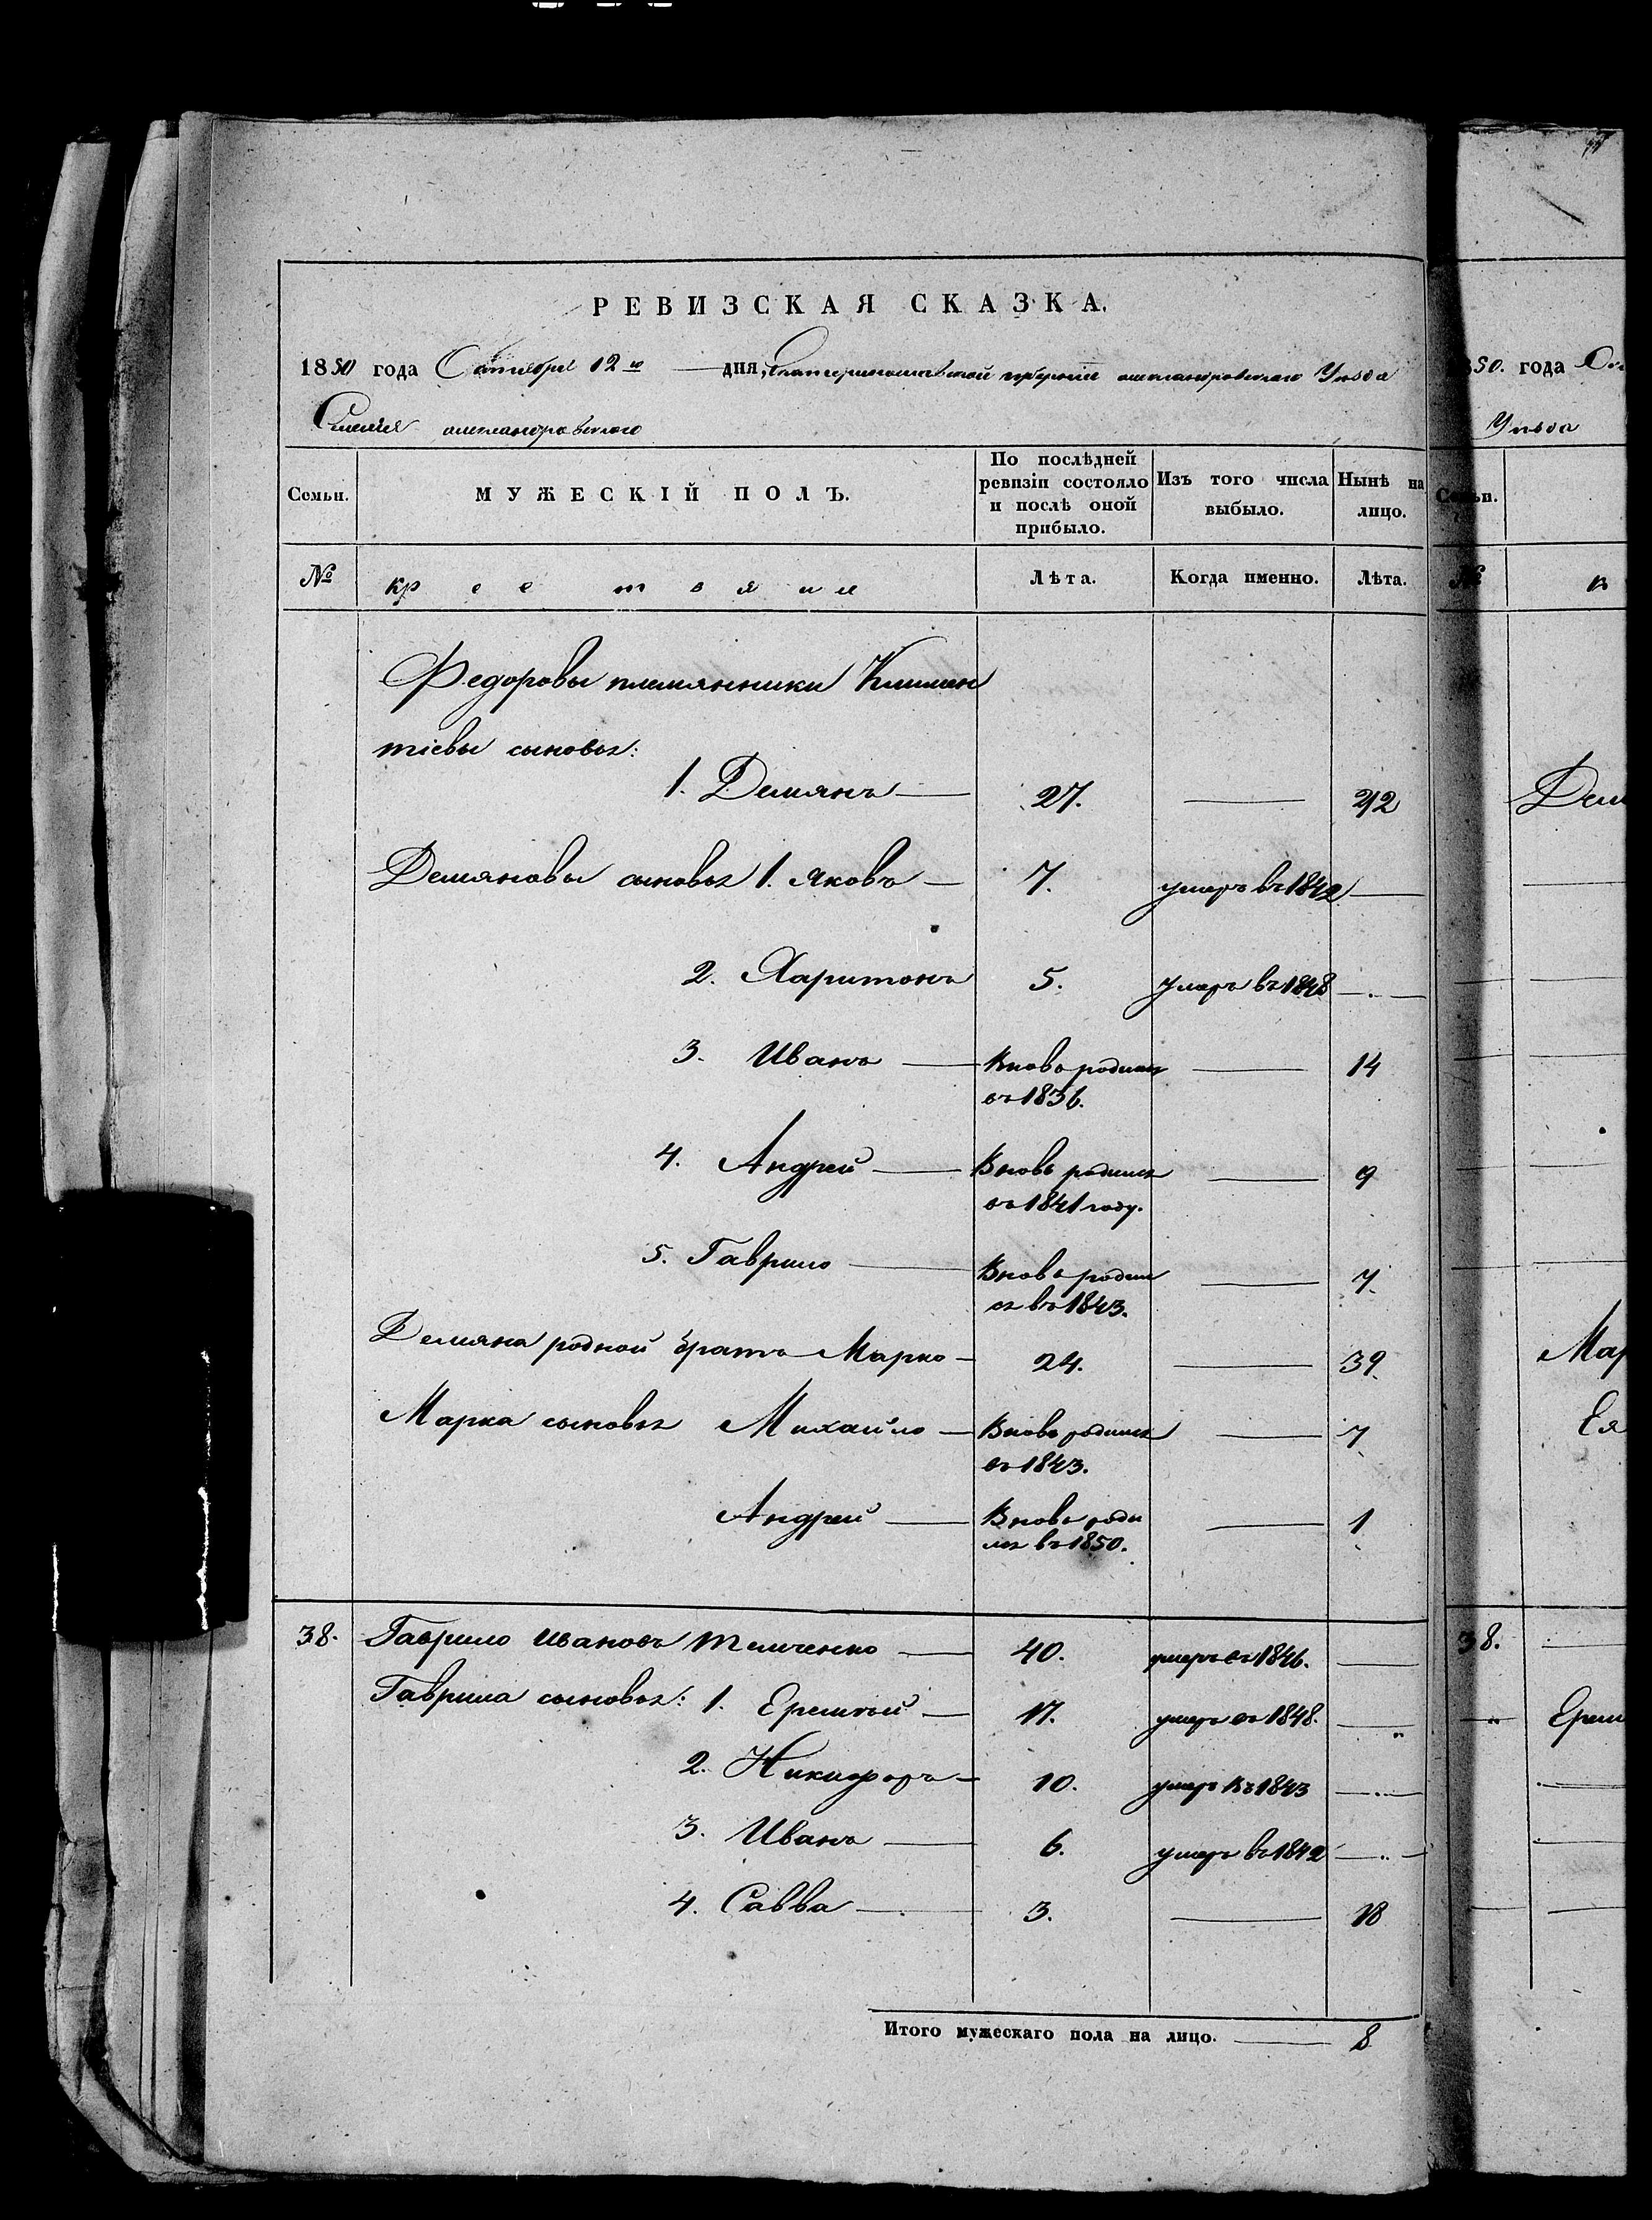 РЕВИЗСКАЯ СКАЗКА.
1850 года Октября 12го дня, Екатеринославской губерніи александровскаго Уѣзда
Селенія александровскаго
Семьи. МУЖЕСКІЙ ПОЛЪ. По послѣдней ревизіи состояло и послѣ оной прибыло. Изъ того числа выбыло. Нынѣ на лицо.
№ крестьяне Лѣта. Когда именно. Лѣта.
Федоровы племянники Климен
тіевы сыновья:
1. Демянъ 27. 42
Демяновы сыновья 1. Яковъ 7. умеръ въ 1842
2. Харитонъ 5. умеръ въ 1848
3. Иванъ Вновь родился 14
въ 1836.
4. Андрей Вновь родился 9
въ 1841 году.
5. Гаврило Вновь родил 7.
ся въ 1843.
Демяна родной братъ Марко 24. 39.
Марка сыновья Михайло Вновь родился 7
въ 1843.
Андрей Вновь роди 1
лся въ 1850.
38. Гаврило Ивановъ Темченко 40. умеръ въ 1846.
Гаврила сыновья: 1. Еремѣй 17. умеръ въ 1848.
2. Никифоръ 10. умеръ въ 1843
3. Иванъ 6. умеръ въ 1842
4. Савва 3. 18
Итого мужескаго пола на лицо. 8
50. года
Уѣзда
№
Дем
Мар
Ея
38.
Ерем